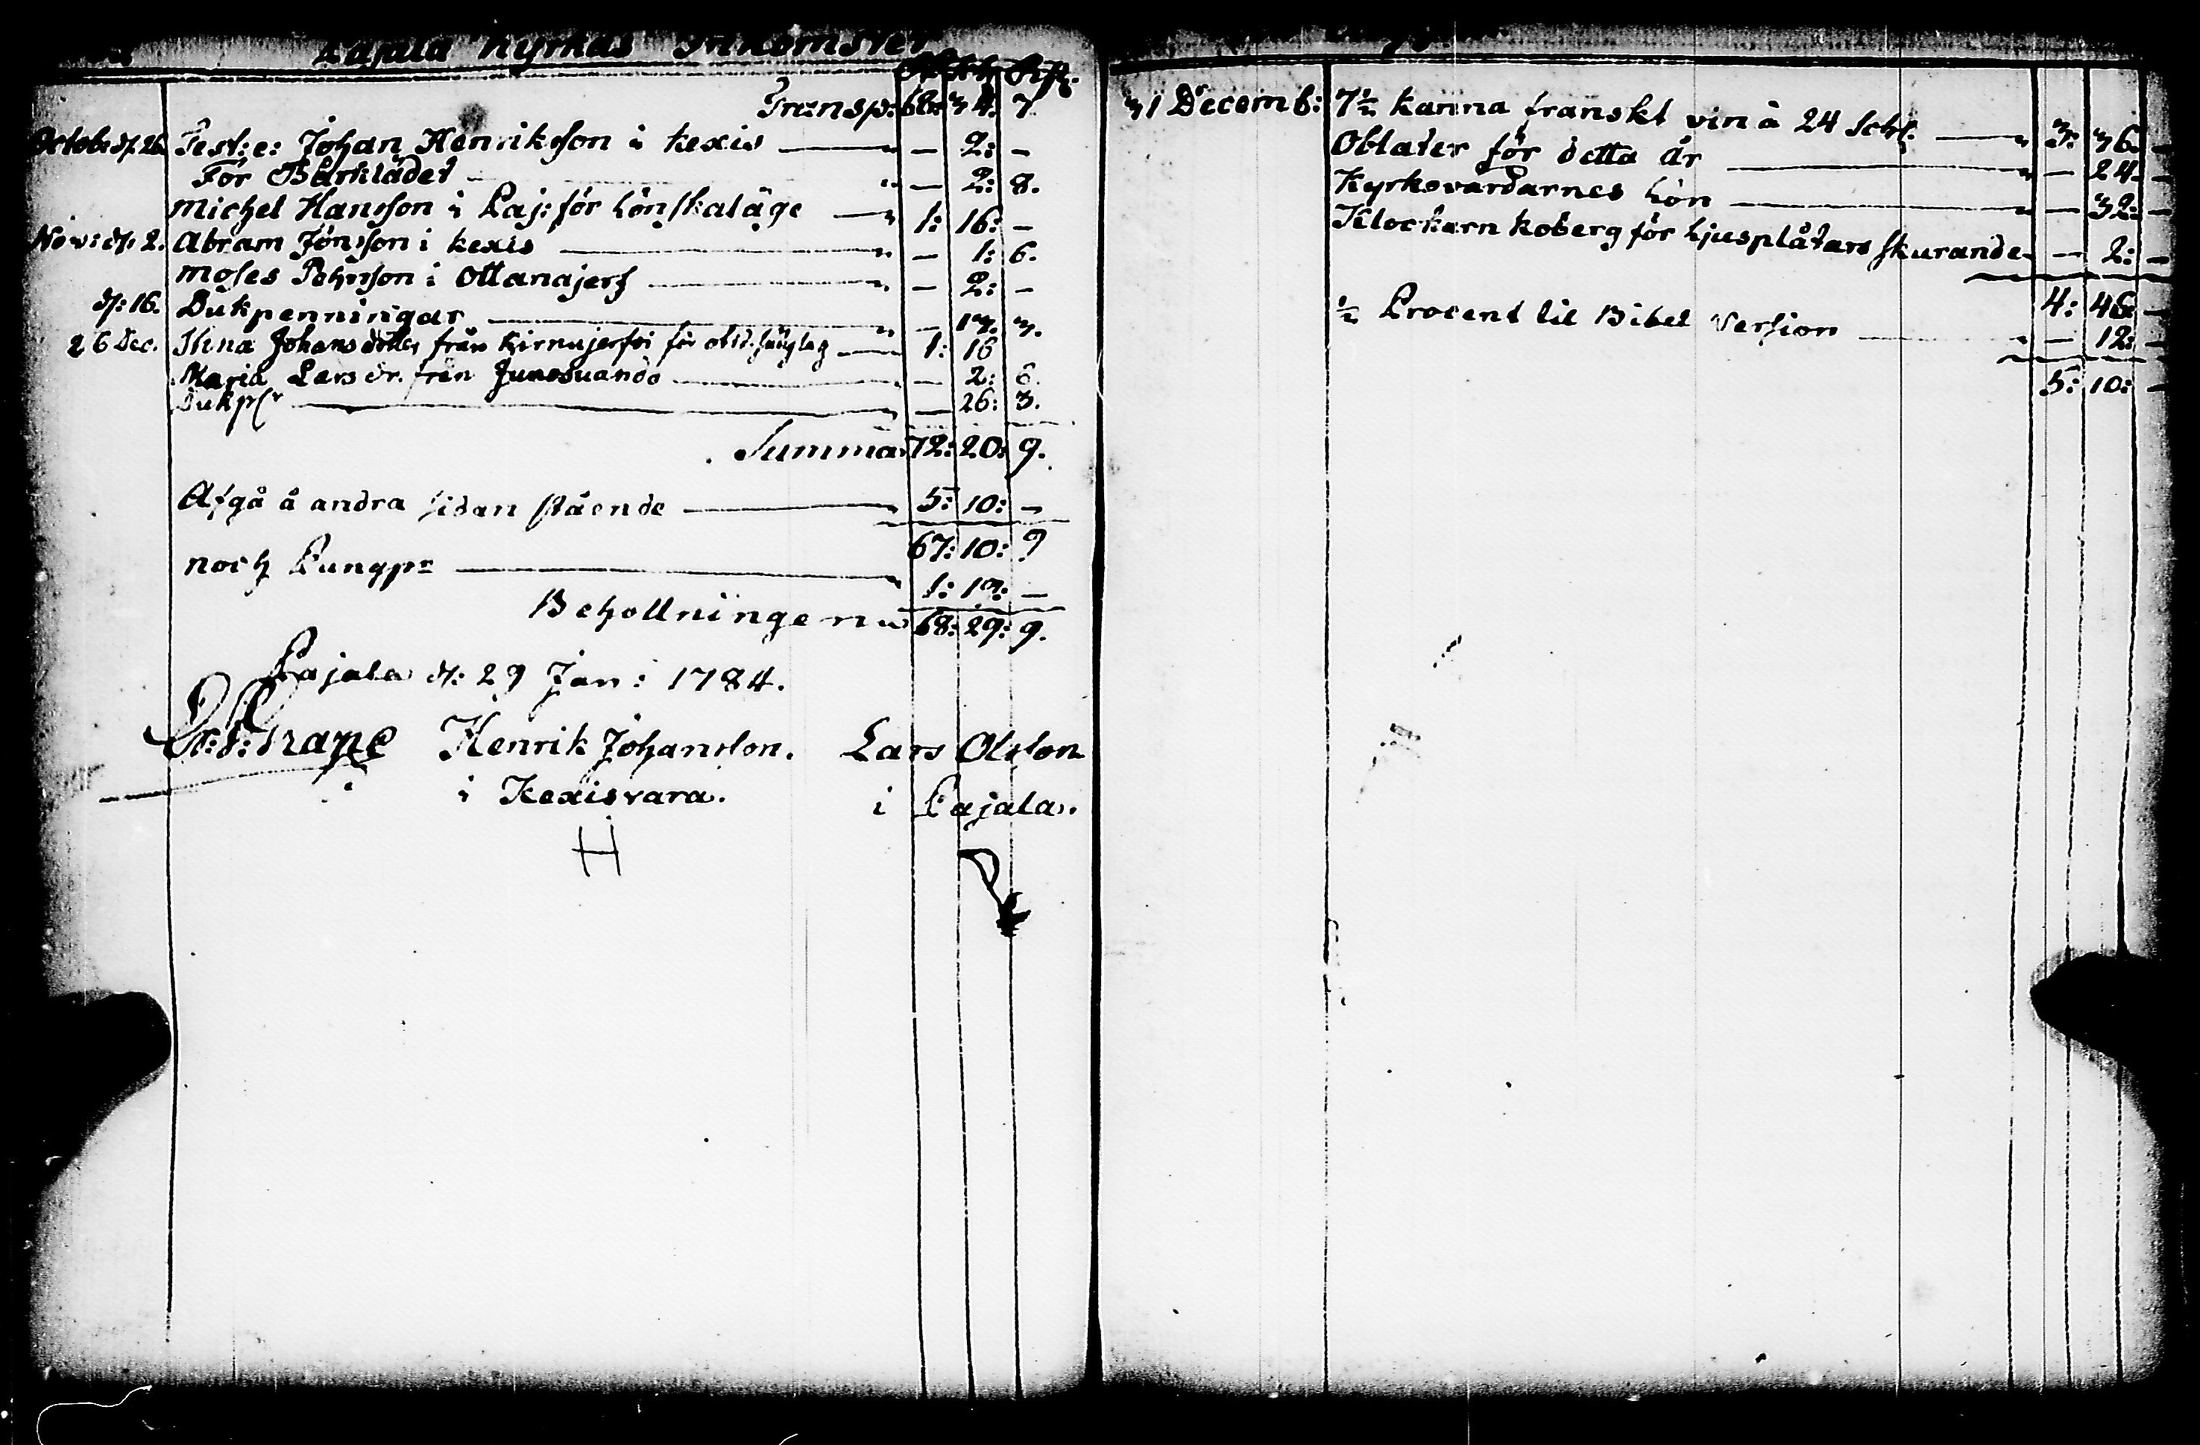 Pajala Kyrkas Inkomster
Rd Sk Rst.
Transp: 68: 34. 7
Octobr d. 26. Test: e: Johan Henriksson i Kexis — 2: —
För Bårklädet — 2: 8.
Michel Hansson i Paj: för Lönskaläge 1: 16: —
Nov: d: 2. Abram Jönsson i Kexis — 1: 6.
Moses Pehrsson i Ottanajerf — 2: —
d: 16. Dukpenningar — 13. 3.
26 Dec. Stina Johansdotter från Kirnujerfvi för 1: 16
Maria Lars dr. från Junosuando — 2: 6.
Dukpr — 26: 3.
Summa 72: 20: 9.
Afgå å andra sidan stående 5: 10: —
67: 10: 9
noch Pungpr 1: 19: —
Behollningen 68: 29: 9.
Pajala d: 29 Jan: 1784.
Henrik Johansson. Lars Olsson
i Kexisvara. i Pajala.
H
31 Decemb: 7½ kanna franskt vin à 24 Schl. 3: 36. —
Oblater för detta år — 24. —
Kyrkovardarnes Lön — 32: —
Klockarn Koberg för Ljusplåtars skurande — 2: —
4: 46: —
½ Procent til Bibel Version — 12: —
5: 10: —